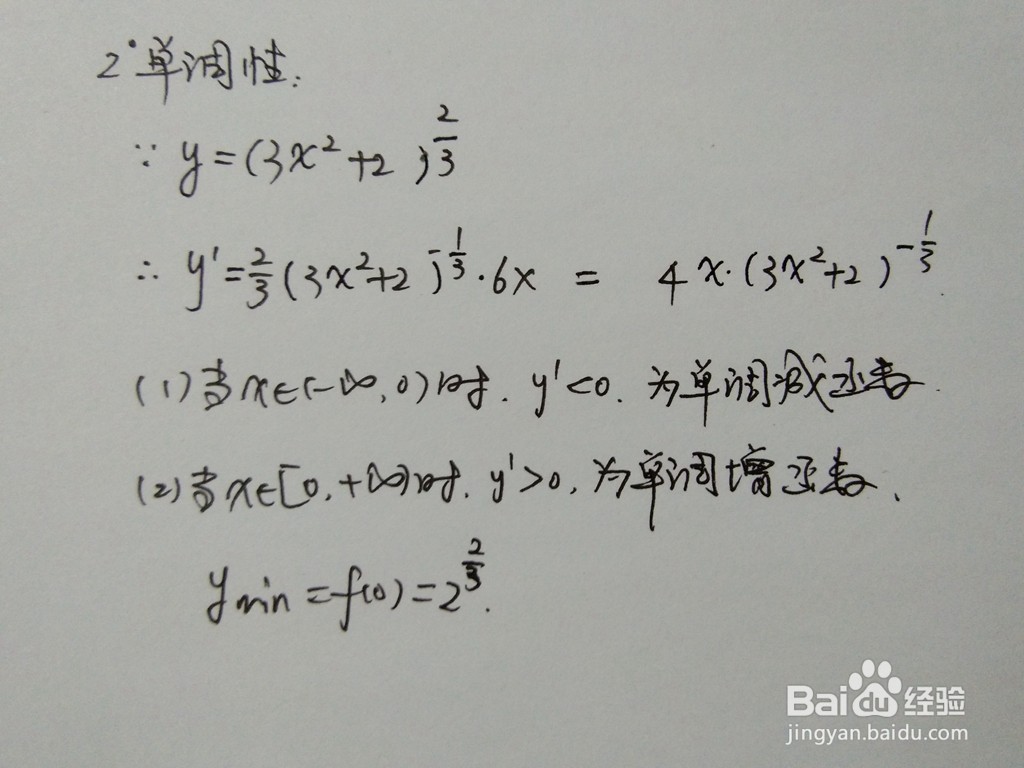 2° 单调性:
∵ y=(3x²+2)^{2/3}
∴ y'=2/3(3x²+2)^{-1/3}·6x = 4x·(3x²+2)^{-1/3}
(1)当x∈(-∞,0)时. y'<0. 为单调减函数.
(2)当x∈[0,+∞)时. y'>0, 为单调增函数.
y min=f(0)=2^{2/3}.
Baidu经验
jingyan.baidu.com